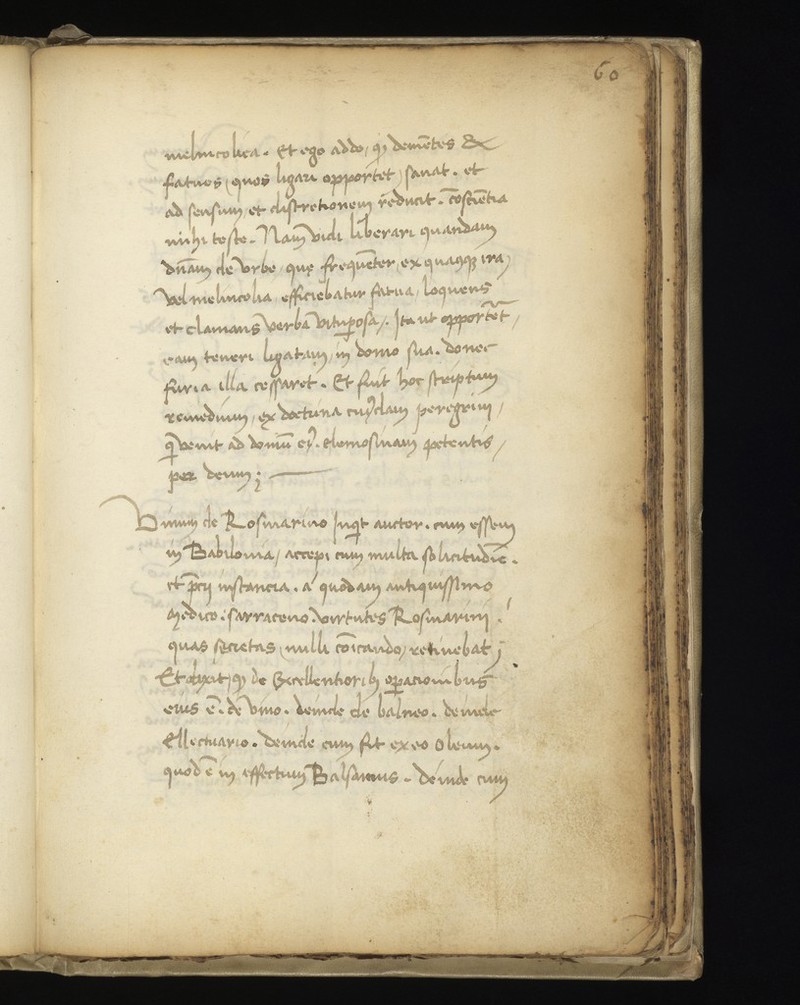 60
melincolica. Et ego addo, ꝙ demẽtes &
fatuos (quos ligari opportet) sanat. et
ad sensum, et discretionem reducit. cõsciẽtia
mihi teste. Nam vidi liberari quandam
dñam de Vrbe, que frequẽter, ex quaqꝫ ira,
vel melincolia, efficiebatur fatua, loquens
et clamans verba vituꝑosa,. Ita ut opportẽt,
eam teneri ligatam, in domo sua. donec
furia illa cessaret. Et fuit hoc scriptum
remedium, ex doctrina cuiusdam peregrini,
qui venit ad domũ eiꝰ. elemosinam petentis,
per deum;
Vinum de Rosmarino Inquit auctor. cum essem
in Babilonia, accepi cum multa solicitudĩe.
et p̃cij instancia. a quodam antiquissimo
Medico. sarraceno. virtutes Rosmarini.
quas secretas (nulli cõicando) retinebat;
Et dixit, ꝙ de Excellentioribꝫ oꝑacionibus
eius ẽ. de vino. deinde de balneo. deinde
Ellectuario. deinde cum fit ex eo oleum.
quod ẽ in effectum Balsamus. deinde cum